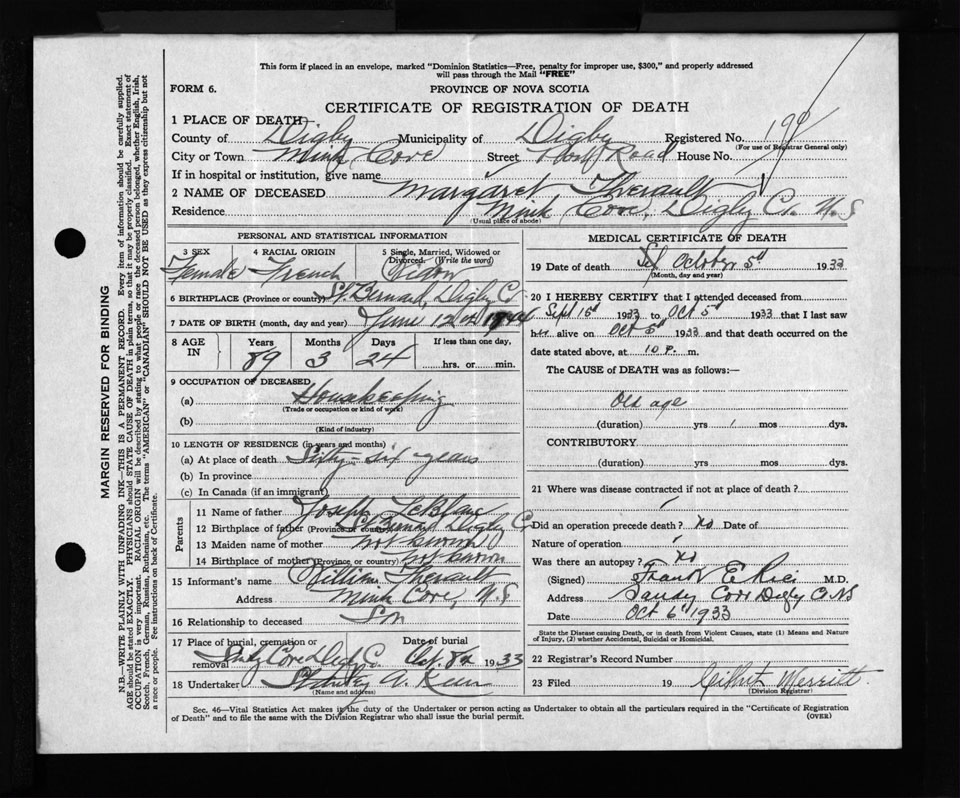 This form if placed in an envelope, marked "Dominion Statistics—Free, penalty for improper use, $300," and properly addressed
will pass through the Mail "FREE"
FORM 6.
PROVINCE OF NOVA SCOTIA
CERTIFICATE OF REGISTRATION OF DEATH
1 PLACE OF DEATH
County of Digby Municipality of Digby Registered No.
(For use of Registrar General only)
City or Town Mink Cove Street Road House No.
If in hospital or institution, give name
2 NAME OF DECEASED Margaret Therault
Residence Mink Cove, Digby Co. N.S
(Usual place of abode)
PERSONAL AND STATISTICAL INFORMATION
3 SEX 4 RACIAL ORIGIN 5 Single, Married, Widowed or Divorced. (Write the word)
Female French Widow
6 BIRTHPLACE (Province or country) St. Bernard, Digby Co
7 DATE OF BIRTH (month, day and year) June 12th
8 AGE IN Years Months Days If less than one day,
89 3 24 hrs. or min.
9 OCCUPATION OF DECEASED
(a) Housekeeping
(Trade or occupation or kind of work)
(b)
(Kind of industry)
10 LENGTH OF RESIDENCE (in years and months)
(a) At place of death Sixty-six years
(b) In province
(c) In Canada (if an immigrant)
Parents
11 Name of father Joseph LeBlanc
12 Birthplace of father (Province or country) St Bernard Digby Co
13 Maiden name of mother not known
14 Birthplace of mother (Province or country) not known
15 Informant's name William Therault
Address Mink Cove, N.S
16 Relationship to deceased Son
17 Place of burial, cremation or removal Sandy Cove Digby Co. Date of burial Oct. 8th 1933
18 Undertaker Stanley A.
(Name and address)
MEDICAL CERTIFICATE OF DEATH
19 Date of death October 5th 1933
(Month, day and year)
20 I HEREBY CERTIFY that I attended deceased from
Sept 15th 1933 to Oct 5th 1933 that I last saw
her alive on Oct 5th 1933 and that death occurred on
date stated above, at 10 P. m.
The CAUSE of DEATH was as follows:—
Old age
(duration) yrs mos dys.
CONTRIBUTORY
(duration) yrs mos dys.
21 Where was disease contracted if not at place of death?
Did an operation precede death? No Date of
Nature of operation
Was there an autopsy? No
(Signed) Frank E Rice M.D.
Address Sandy Cove Digby Co NS
Date Oct 6th 1933
State the Disease causing Death, or in death from Violent Causes, state (1) Means and Nature
of Injury, (2) whether Accidental, Suicidal or Homicidal.
22 Registrar's Record Number
23 Filed 19 Merritt
(Division Registrar)
Sec. 46—Vital Statistics Act makes it the duty of the Undertaker or person acting as Undertaker to obtain all the particulars required in the "Certificate of Registration
of Death" and to file the same with the Division Registrar who shall issue the burial permit.
(OVER)
MARGIN RESERVED FOR BINDING
N.B.—WRITE PLAINLY WITH UNFADING INK—THIS IS A PERMANENT RECORD. Every item of information should be carefully supplied.
AGE should be stated EXACTLY. PHYSICIANS should STATE CAUSE OF DEATH in plain terms, so that it may be properly classified. Exact statement of
OCCUPATION is very important. RACIAL ORIGIN will be described by stating to what people or race the deceased person belonged, whether English, Irish,
Scotch, French, German, Russian, Ruthenian, etc. The terms "AMERICAN" or "CANADIAN" SHOULD NOT BE USED as they express citizenship but not
a race or people. See instructions on back of Certificate.